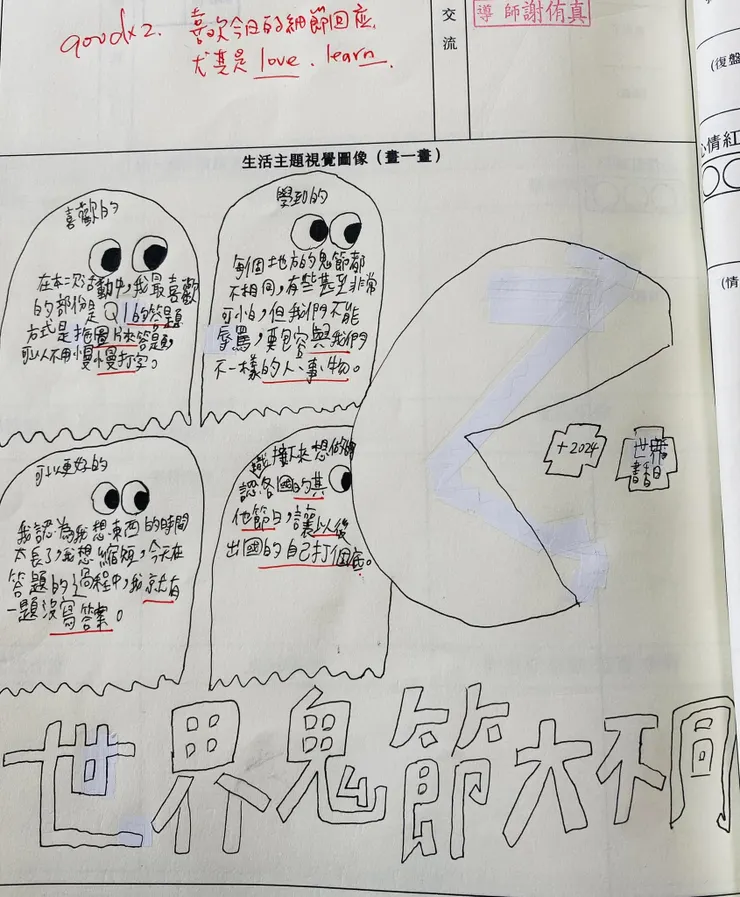 goodx2. 喜歡今日的細節回應
尤其是 love、learn.
交
流
導師謝侑真
(復盤
心情紅
(情
生活主題視覺圖像（畫一畫）
喜歡的
在本次活動中，我最喜歡
的部份是Q1的答題
方式是拖圖片來答題，
可以不用慢慢打字。
學到的
每個地方的鬼節都
不相同，有些甚至非常
可怕，但我們不能
辱罵，要包容與我們
不一樣的人、事、物。
可以更好的
我認為我想東西的時間
太長了，我想縮短，今天在
答題的過程中，我就有
一題沒寫答案。
接下來想
認各國的其
他節日，讓以後
出國的自己打個底。
+2024
世界
書香日
世界鬼節大不同